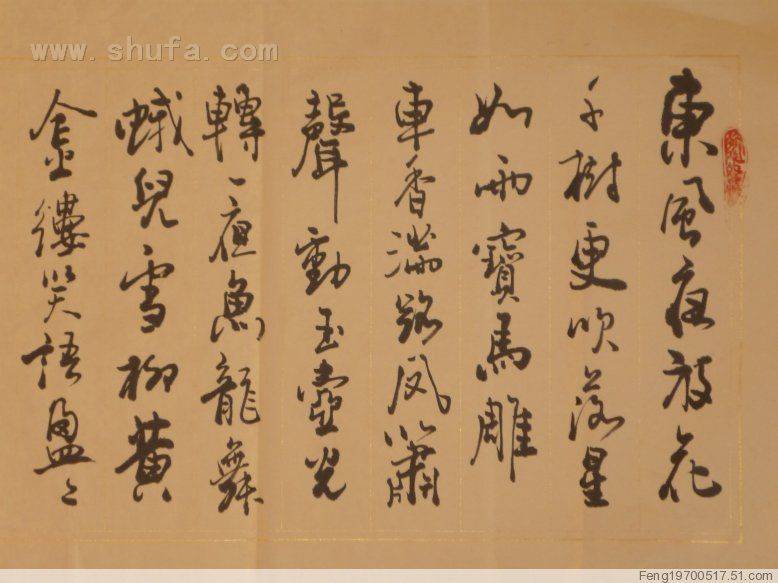 東風夜放花
千樹更吹落星
如雨寶馬雕
車香滿路凤簫
聲動玉壼光
轉一夜魚龍舞
蛾兒雪柳黄
金縷笑語盈〻
www.shufa.com
Feng19700517.51.com